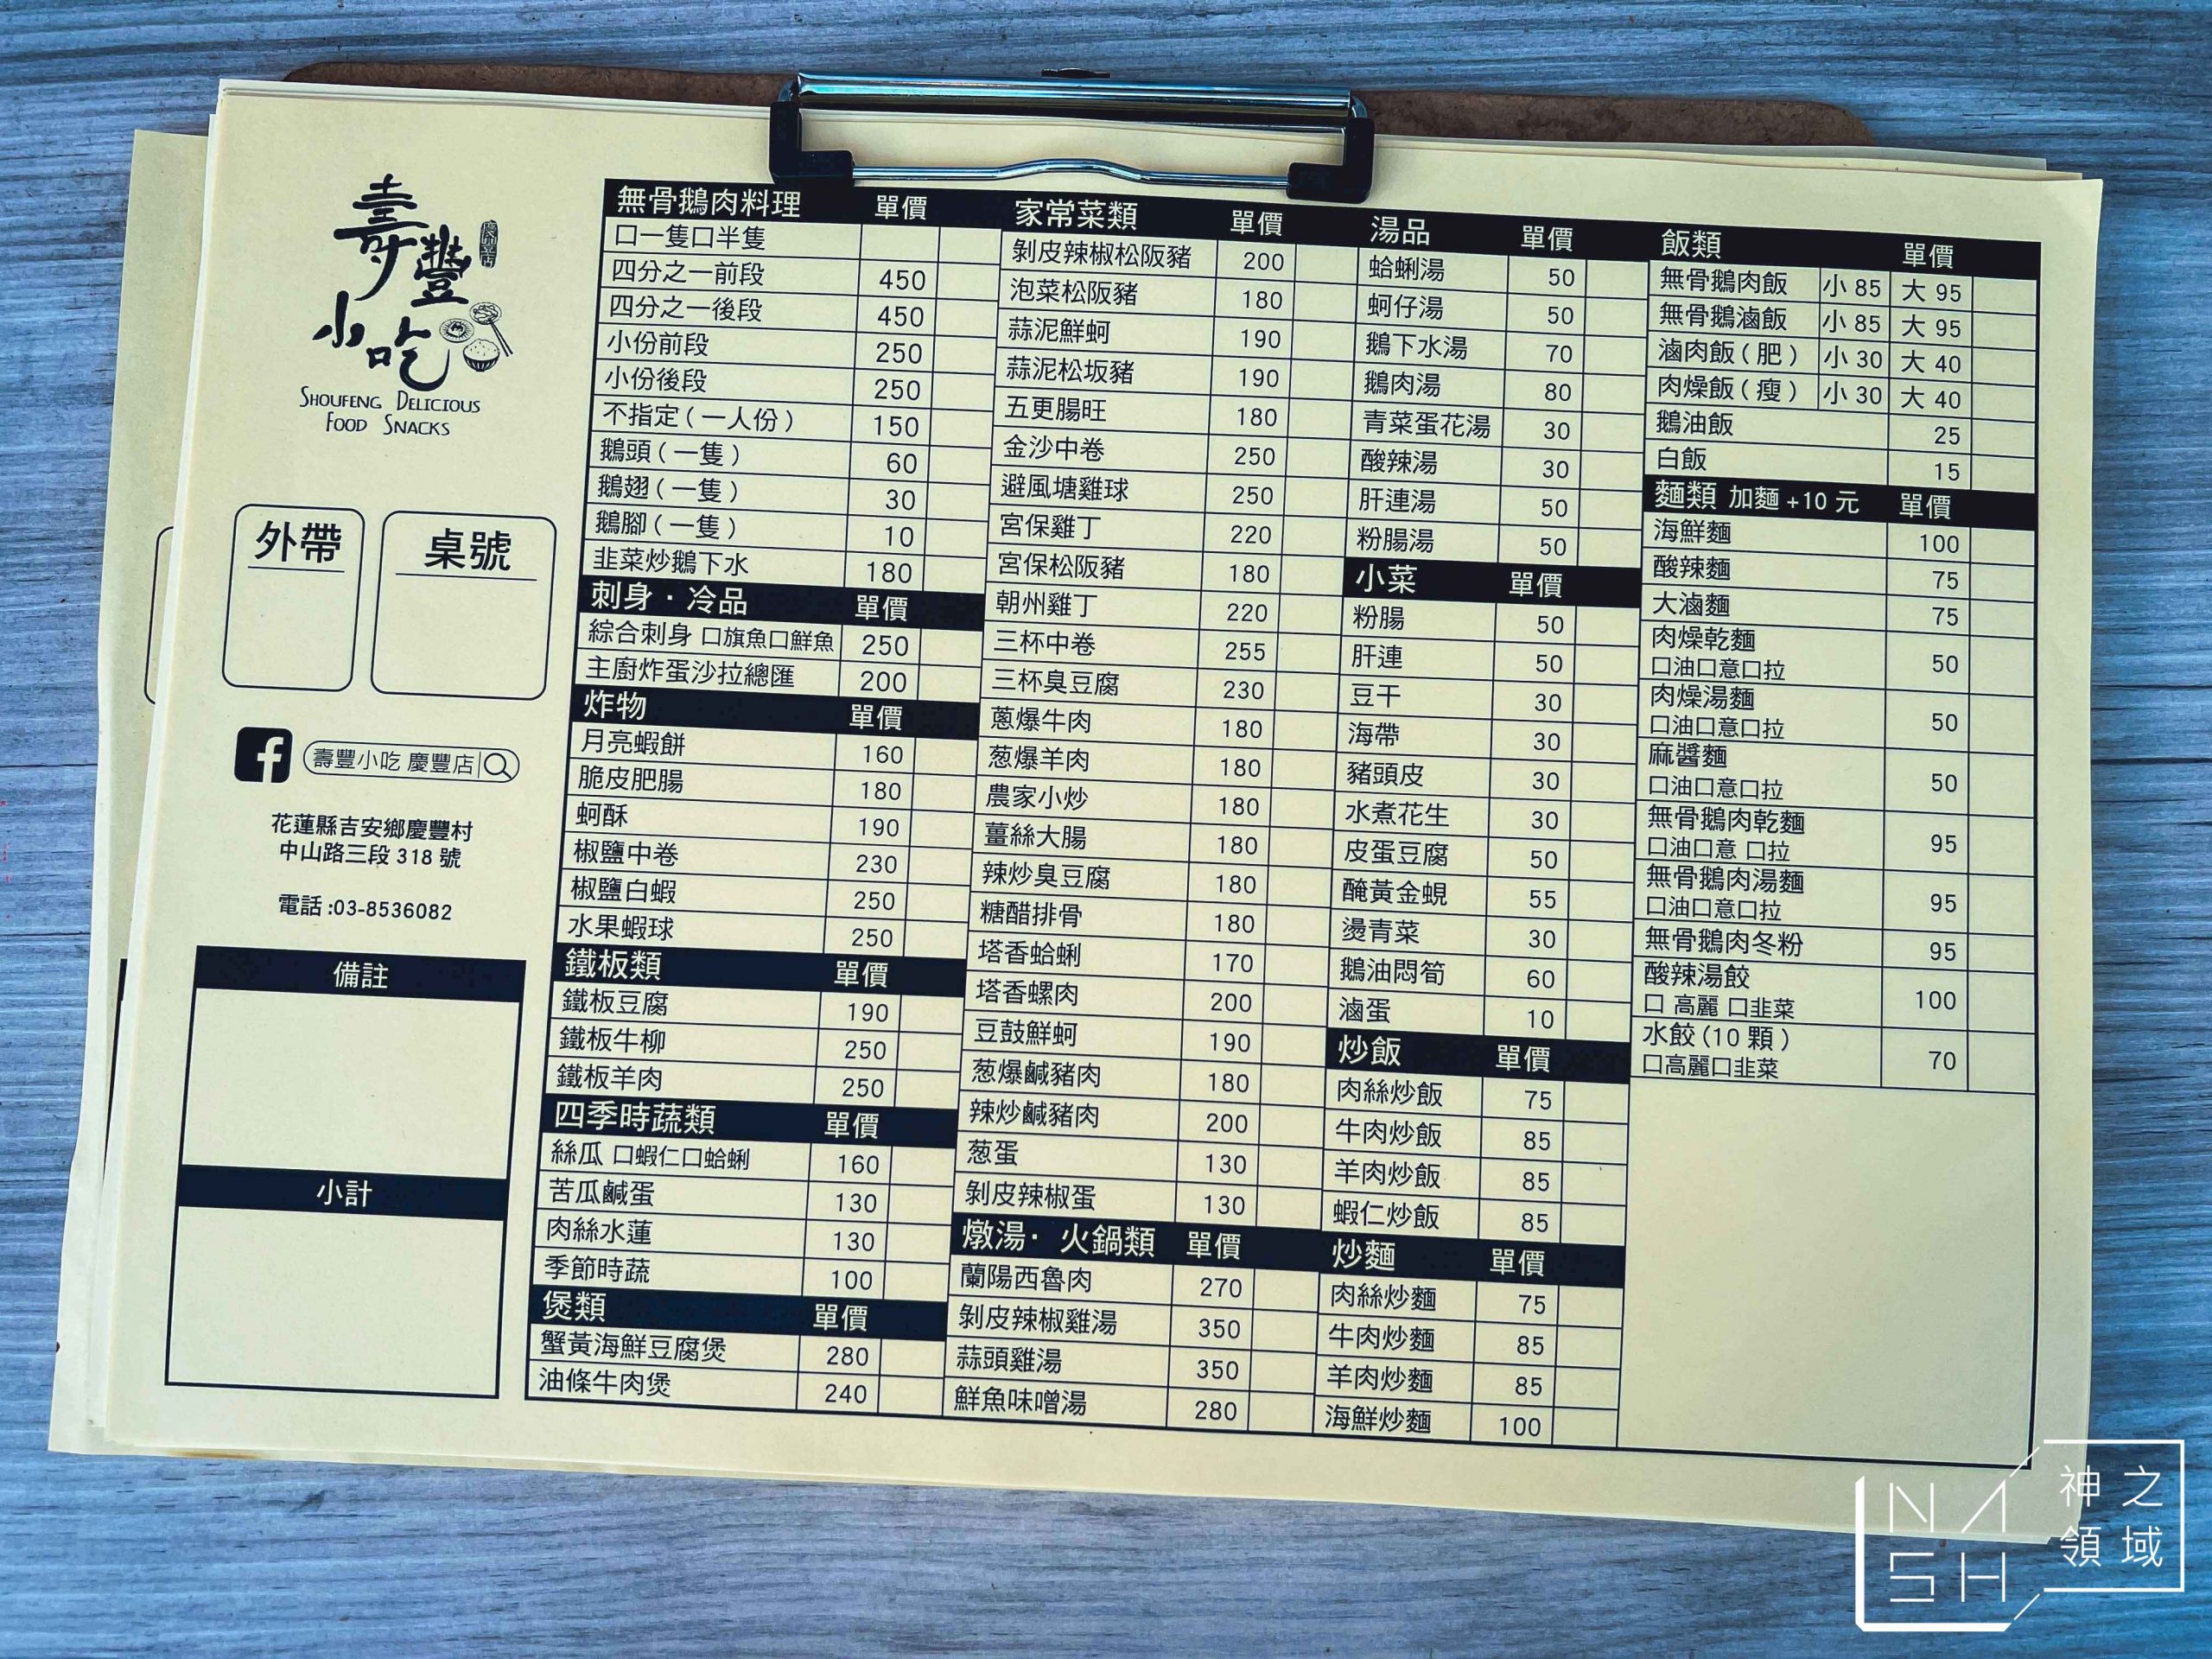 壽豐
小吃
SHOUFENG DELICIOUS
FOOD SNACKS
外帶
桌號
壽豐小吃 慶豐店
花蓮縣吉安鄉慶豐村
中山路三段 318 號
電話:03-8536082
備註
小計
無骨鵝肉料理 單價
口一隻口半隻
四分之一前段 450
四分之一後段 450
小份前段 250
小份後段 250
不指定(一人份) 150
鵝頭(一隻) 60
鵝翅(一隻) 30
鵝腳(一隻) 10
韭菜炒鵝下水 180
刺身·冷品 單價
綜合刺身 口旗魚口鮮魚 250
主廚炸蛋沙拉總匯 200
炸物 單價
月亮蝦餅 160
脆皮肥腸 180
蚵酥 190
椒鹽中卷 230
椒鹽白蝦 250
水果蝦球 250
鐵板類 單價
鐵板豆腐 190
鐵板牛柳 250
鐵板羊肉 250
四季時蔬類 單價
絲瓜 口蝦仁口蛤蜊 160
苦瓜鹹蛋 130
肉絲水蓮 130
季節時蔬 100
煲類 單價
蟹黃海鮮豆腐煲 280
油條牛肉煲 240
家常菜類 單價
剝皮辣椒松阪豬 200
泡菜松阪豬 180
蒜泥鮮蚵 190
蒜泥松坂豬 190
五更腸旺 180
金沙中卷 250
避風塘雞球 250
宮保雞丁 220
宮保松阪豬 180
朝州雞丁 220
三杯中卷 255
三杯臭豆腐 230
蔥爆牛肉 180
葱爆羊肉 180
農家小炒 180
薑絲大腸 180
辣炒臭豆腐 180
糖醋排骨 180
塔香蛤蜊 170
塔香螺肉 200
豆鼓鮮蚵 190
葱爆鹹豬肉 180
辣炒鹹豬肉 200
葱蛋 130
剝皮辣椒蛋 130
燉湯·火鍋類 單價
蘭陽西魯肉 270
剝皮辣椒雞湯 350
蒜頭雞湯 350
鮮魚味噌湯 280
湯品 單價
蛤蜊湯 50
蚵仔湯 50
鵝下水湯 70
鵝肉湯 80
青菜蛋花湯 30
酸辣湯 30
肝連湯 50
粉腸湯 50
小菜 單價
粉腸 50
肝連 50
豆干 30
海帶 30
豬頭皮 30
水煮花生 30
皮蛋豆腐 50
醃黃金蜆 55
燙青菜 30
鵝油悶筍 60
滷蛋 10
炒飯 單價
肉絲炒飯 75
牛肉炒飯 85
羊肉炒飯 85
蝦仁炒飯 85
炒麵 單價
肉絲炒麵 75
牛肉炒麵 85
羊肉炒麵 85
海鮮炒麵 100
飯類 單價
無骨鵝肉飯 小 85 大 95
無骨鵝滷飯 小 85 大 95
滷肉飯(肥) 小 30 大 40
肉燥飯(瘦) 小 30 大 40
鵝油飯 25
白飯 15
麵類 加麵+10 元 單價
海鮮麵 100
酸辣麵 75
大滷麵 75
肉燥乾麵 50
口油口意口拉
肉燥湯麵 50
口油口意口拉
麻醬麵 50
口油口意口拉
無骨鵝肉乾麵 95
口油口意 口拉
無骨鵝肉湯麵 95
口油口意口拉
無骨鵝肉冬粉 95
酸辣湯餃 100
口 高麗 口韭菜
水餃(10 顆) 70
口高麗口韭菜
NASH
神之
領域